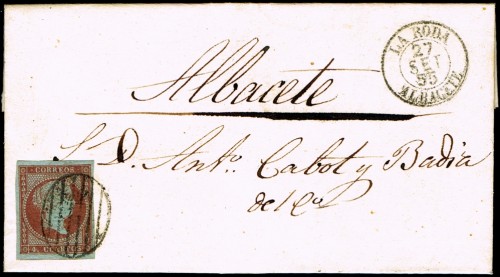 LA RODA
27
SET
55
ALBACETE
Albacete
S. D. Antº. Cabot y Badia
del Cº
CORREOS
4 CUARTOS